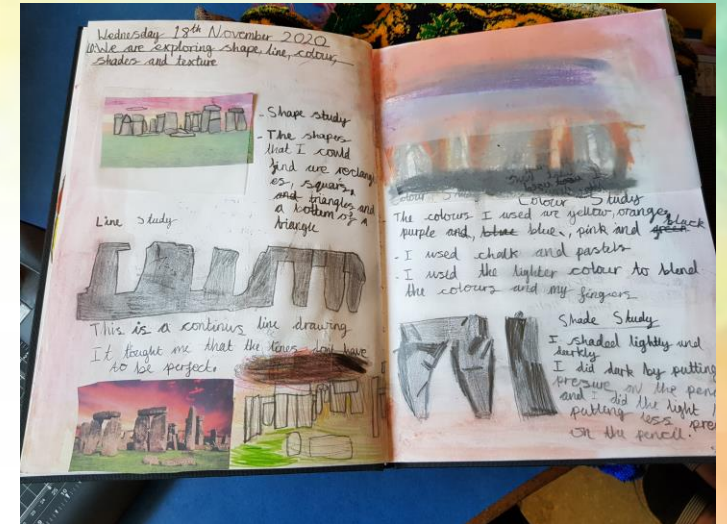 Wednesday 18th November 2020
We are exploring shape, line, colour,
shades and texture
- Shape study
- The shapes
that I could
find are rectangl
es, squars,
and triangles and
a bottom of a
triangle
Line study
This is a continus line drawing
It tought me that the lines dont have
to be perfect.
Colour Study
The colours I used are yellow, orange,
purple and, blue blues, pink and green black
- I used chalk and pastels
- I used the lighter colour to blend
the colours and my fingers
Shade Study
I shaded lightly and
darkly
I did dark by putting
presure on the penc
and I did the light
putting less pres
on the pencil.